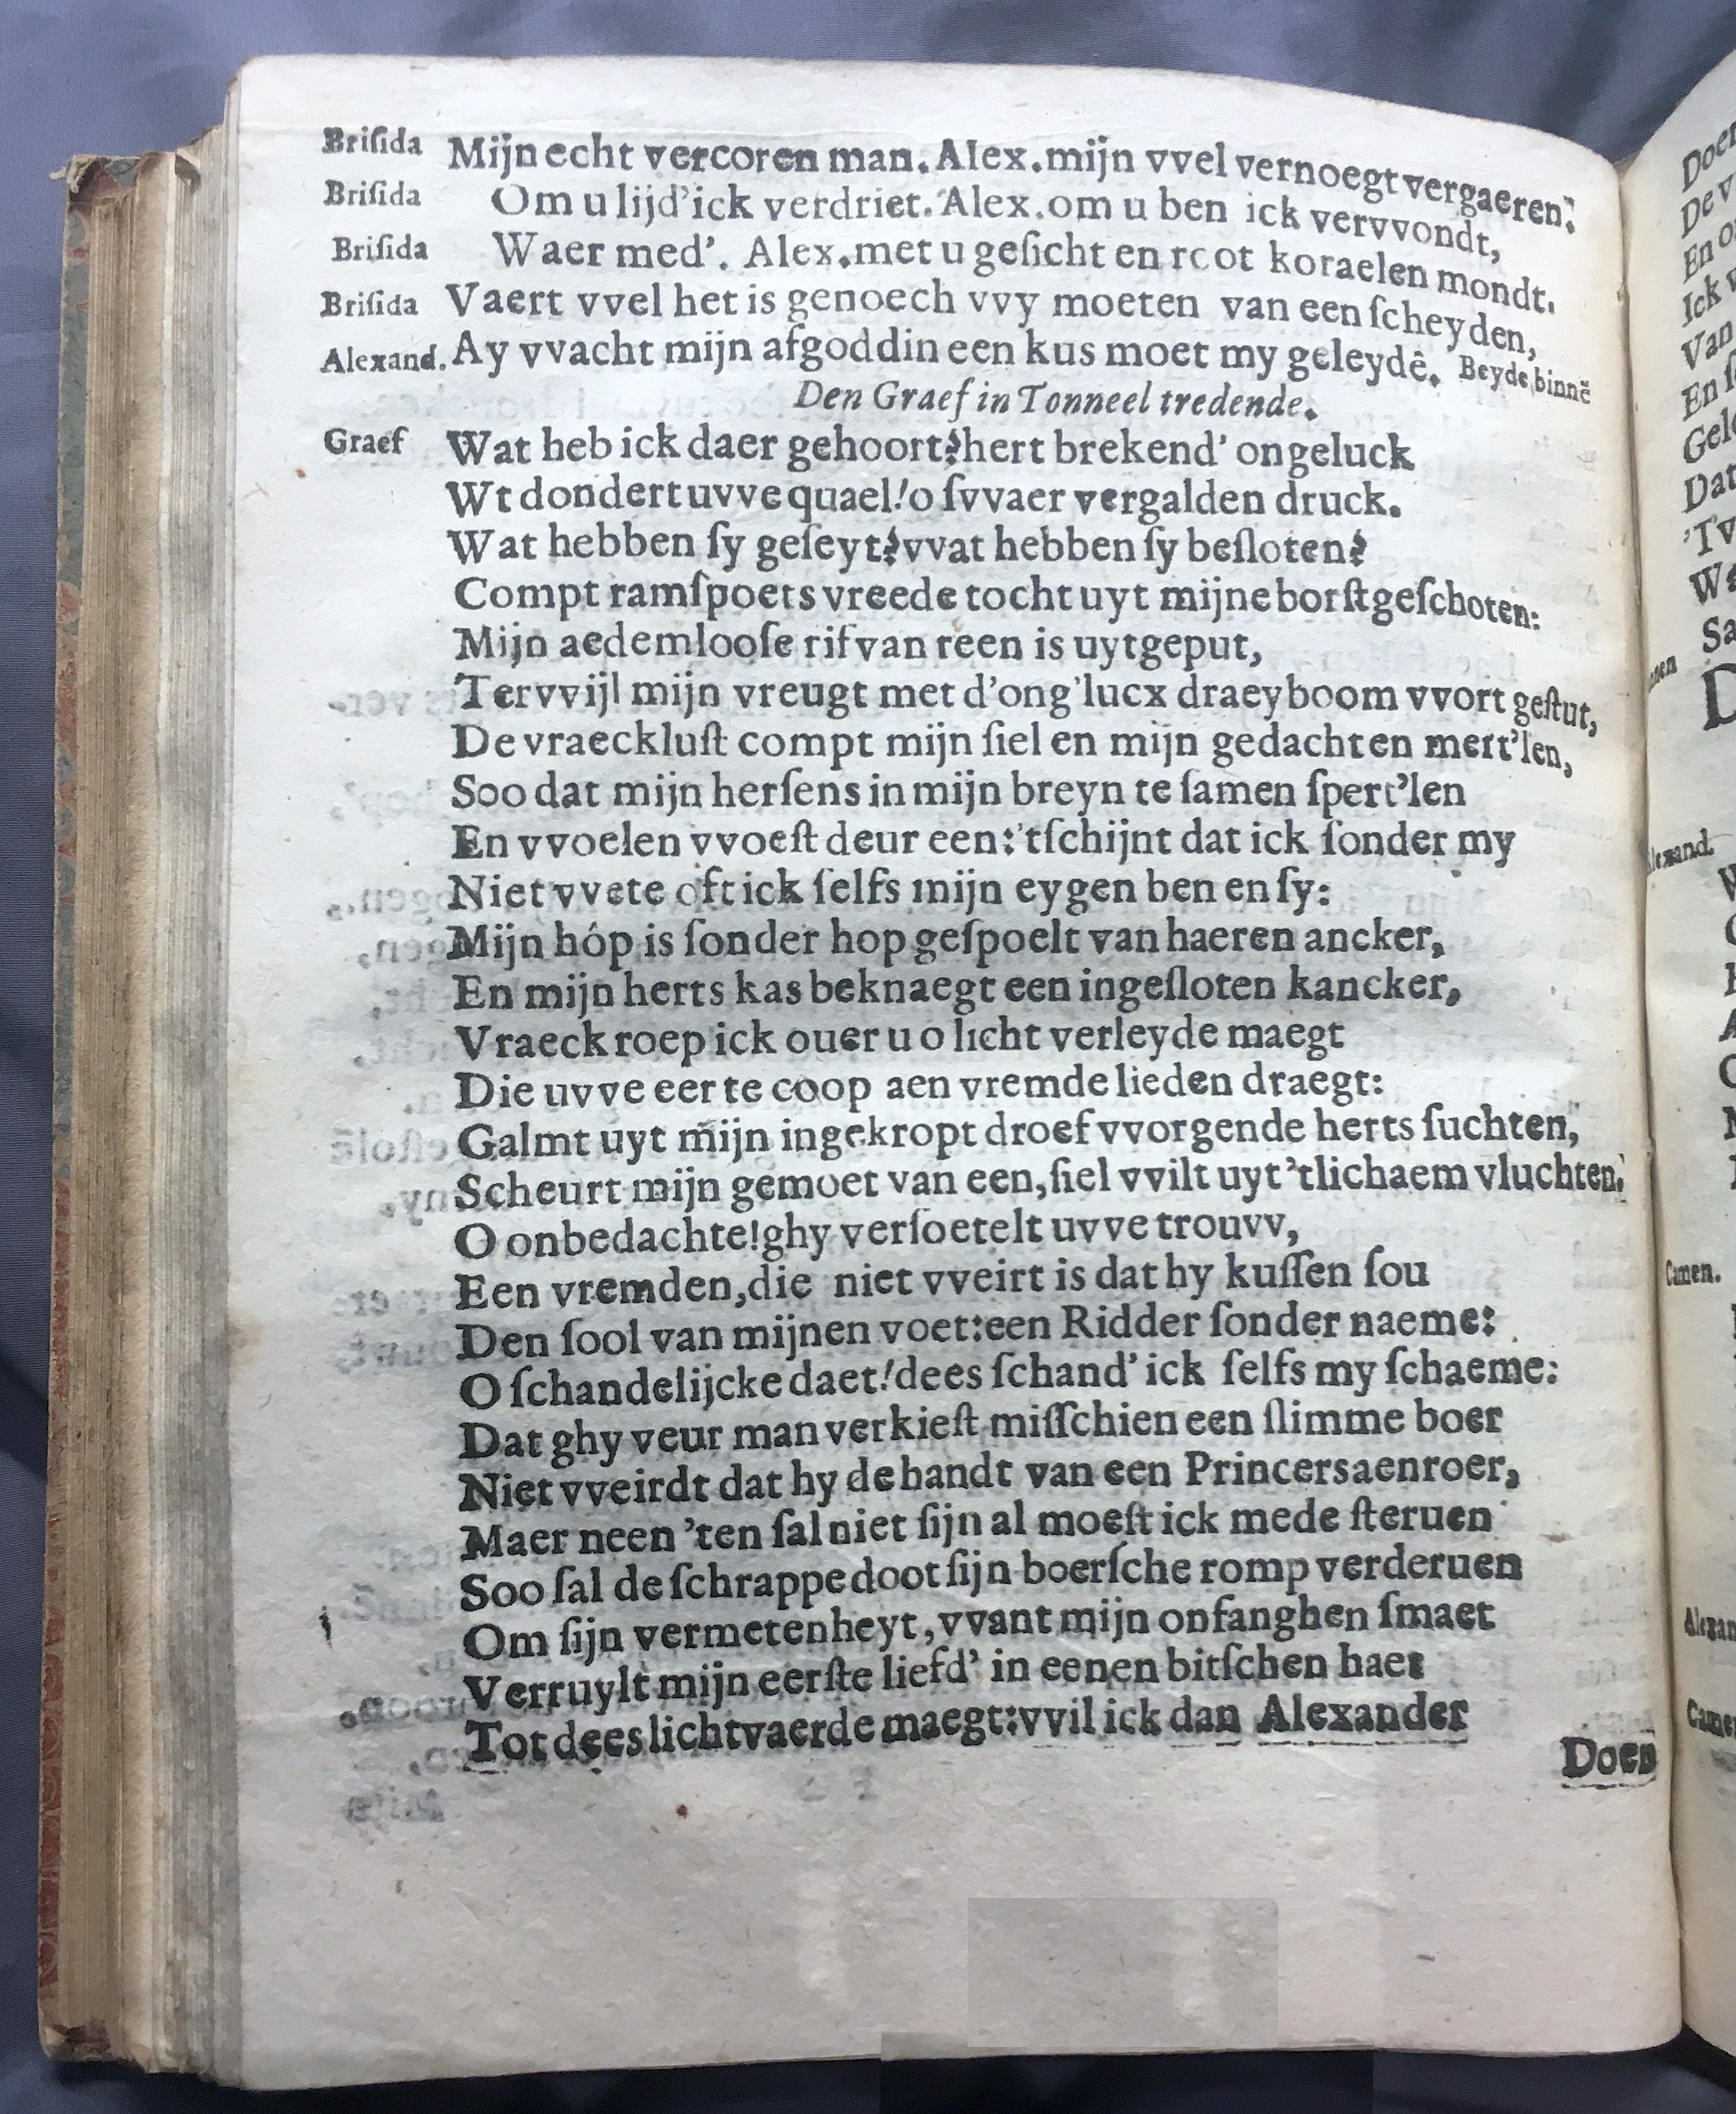 Briſida Mijn echt vercoren man. Alex. mijn vvel vernoegt vergaeren.
Briſida Om u lijd'ick verdriet. Alex. om u ben ick vervvondt,
Briſida Waer med'. Alex. met u geſicht en root koraelen mondt.
Briſida Vaert vvel het is genoech vvy moeten van een ſcheyden,
Alexand. Ay vvacht mijn afgoddin een kus moet my geleydē. Beyde binnē
Den Graef in Tonneel tredende.
Graef Wat heb ick daer gehoort? hert brekend' ongeluck
Wt dondert uvve quael! o ſvvaer vergalden druck.
Wat hebben ſy geſeyt? vvat hebben ſy beſloten?
Compt ramſpoets vreede tocht uyt mijne borſt geſchoten:
Mijn aedemlooſe rif van reen is uytgeput,
Tervvijl mijn vreugt met d'ong'lucx draeyboom vvort geſtut,
De vraeckluſt compt mijn ſiel en mijn gedachten mert'len,
Soo dat mijn herſens in mijn breyn te ſamen ſpert'len
En vvoelen vvoeſt deur een: 'tſchijnt dat ick ſonder my
Niet vvete oft ick ſelfs mijn eygen ben en ſy:
Mijn hóp is ſonder hop geſpoelt van haeren ancker,
En mijn herts kas beknaegt een ingeſloten kancker,
Vraeck roep ick ouer u o licht verleyde maegt
Die uvve eer te coop aen vremde lieden draegt:
Galmt uyt mijn ingekropt droef vvorgende herts ſuchten,
Scheurt mijn gemoet van een, ſiel vvilt uyt 'tlichaem vluchten.
O onbedachte! ghy verſoetelt uvve trouvv,
Een vremden, die niet vveirt is dat hy kuſſen ſou
Den ſool van mijnen voet: een Ridder ſonder naeme:
O ſchandelijcke daet! dees ſchand' ick ſelfs my ſchaeme:
Dat ghy veur man verkieſt miſſchien een ſlimme boer
Niet vveirdt dat hy de handt van een Princers aenroer,
Maer neen 'ten ſal niet ſijn al moeſt ick mede ſteruen
Soo ſal de ſchrappe doot ſijn boerſche romp verderuen
Om ſijn vermetenheyt, vvant mijn onfanghen ſmaet
Verruylt mijn eerſte liefd' in eenen bitſchen haet
Tot dees lichtvaerde maegt: vvil ick dan Alexander
Doen